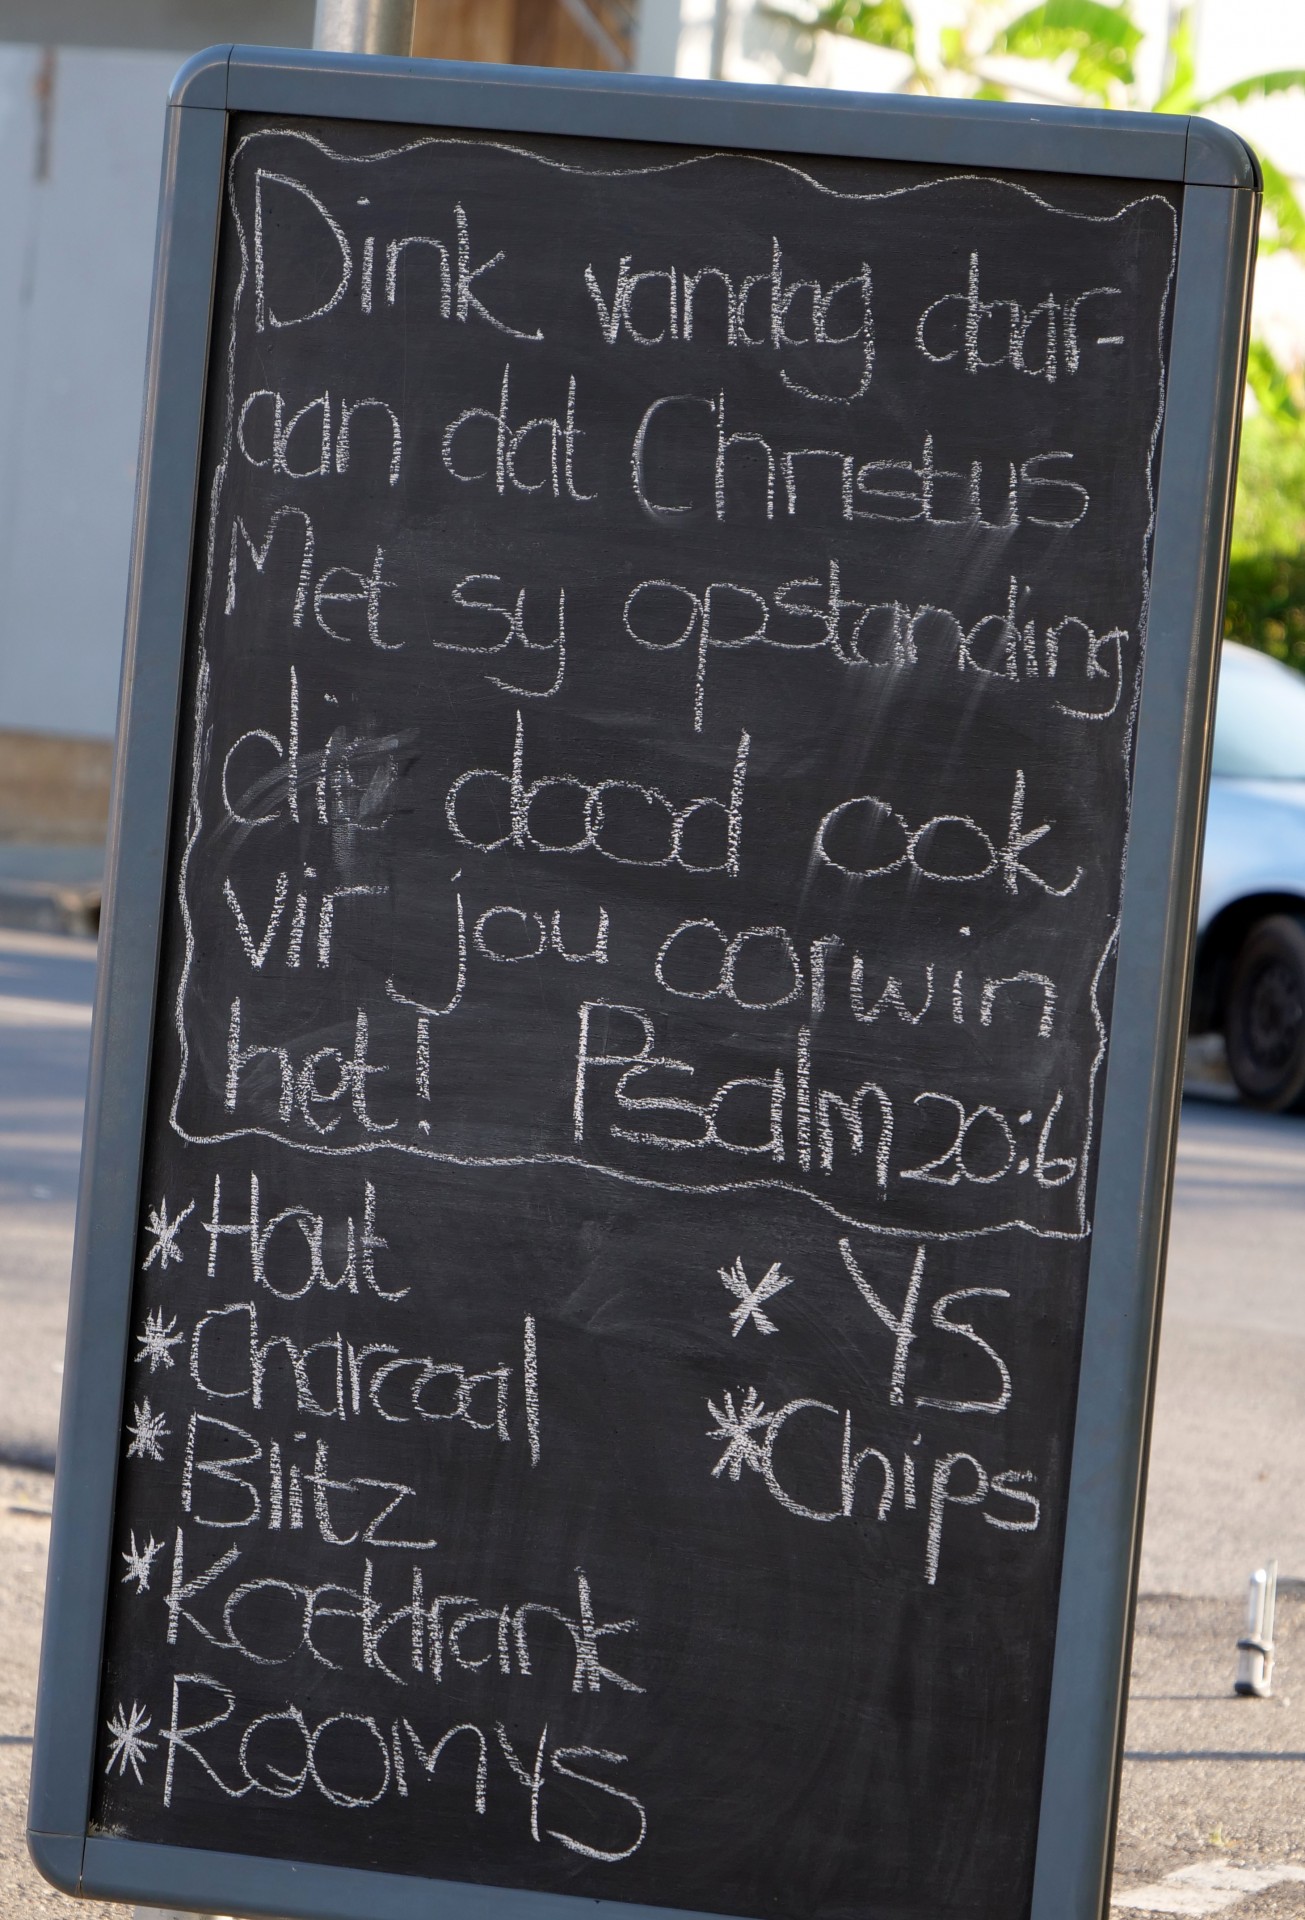 Dink vandag daar-
aan dat Christus
Met sy opstanding
die dood ook
vir jou oorwin
het! Psalm 20:6
* Hout
* Charcoal
* Blitz
* Koeldrank
* Roomys
* YS
* Chips